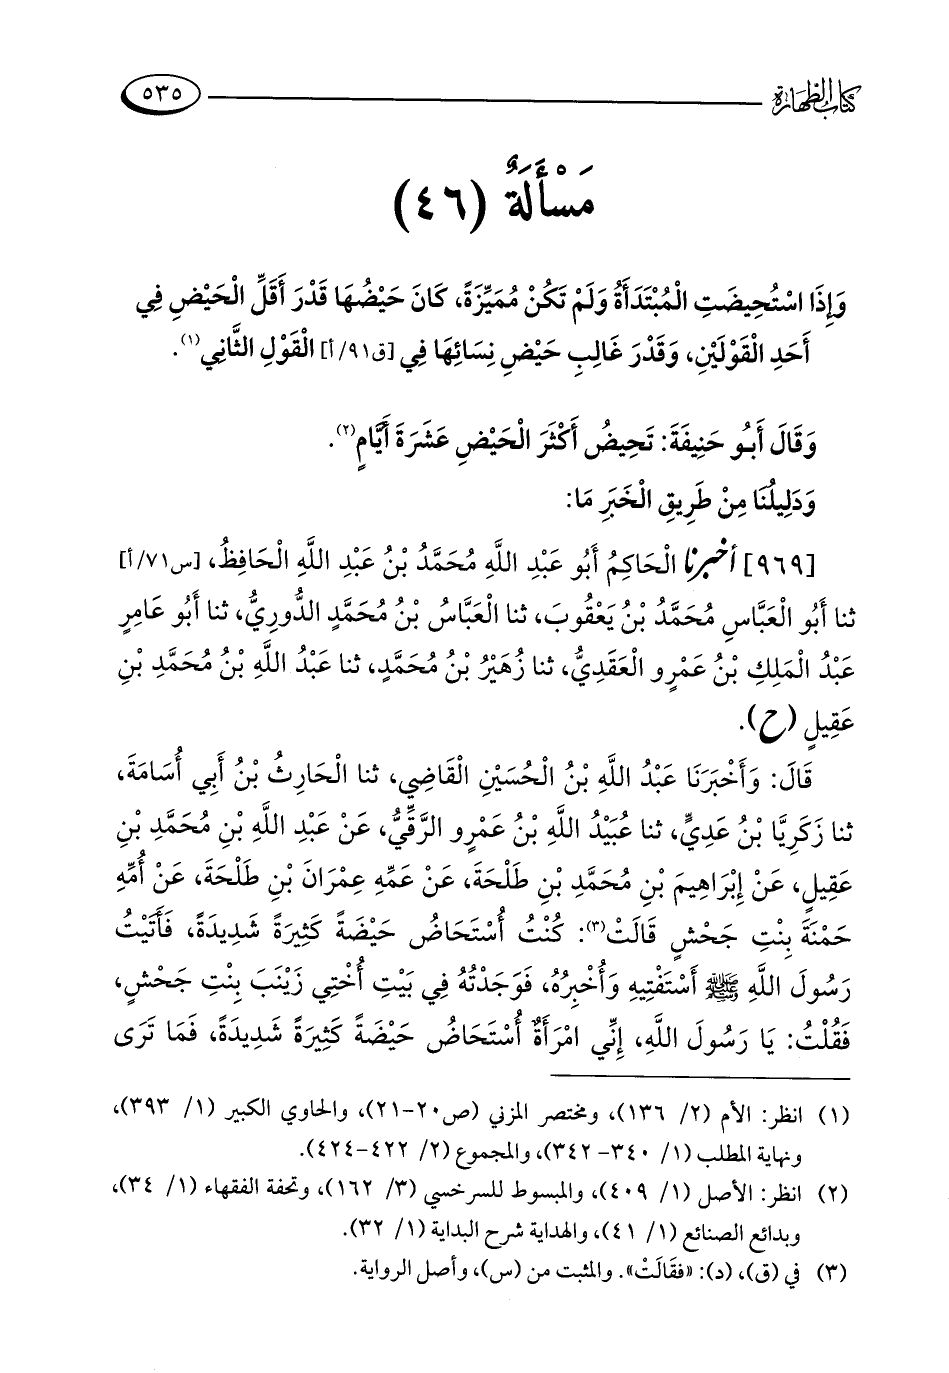 كتاب الطهارة ٥٣٥
مَسْأَلَةٌ (٤٦)
وَإِذَا اسْتُحِيضَتِ الْمُبْتَدَأَةُ وَلَمْ تَكُنْ مُمَيِّزَةً، كَانَ حَيْضُهَا قَدْرَ أَقَلِّ الْحَيْضِ فِي
أَحَدِ الْقَوْلَيْنِ، وَقَدْرَ غَالِبِ حَيْضِ نِسَائِهَا فِي [ق٩١/أ] الْقَوْلِ الثَّانِي(١).
وَقَالَ أَبُو حَنِيفَةَ: تَحِيضُ أَكْثَرَ الْحَيْضِ عَشَرَةَ أَيَّامٍ(٢).
وَدَلِيلُنَا مِنْ طَرِيقِ الْخَبَرِ مَا:
[٩٦٩] أخبرنا الْحَاكِمُ أَبُو عَبْدِ اللَّهِ مُحَمَّدُ بْنُ عَبْدِ اللَّهِ الْحَافِظُ، [س٧١/أ]
ثنا أَبُو الْعَبَّاسِ مُحَمَّدُ بْنُ يَعْقُوبَ، ثنا الْعَبَّاسُ بْنُ مُحَمَّدٍ الدُّورِيُّ، ثنا أَبُو عَامِرٍ
عَبْدُ الْمَلِكِ بْنُ عَمْرٍو الْعَقَدِيُّ، ثنا زُهَيْرُ بْنُ مُحَمَّدٍ، ثنا عَبْدُ اللَّهِ بْنُ مُحَمَّدِ بْنِ
عَقِيلٍ (ح).
قَالَ: وَأَخْبَرَنَا عَبْدُ اللَّهِ بْنُ الْحُسَيْنِ الْقَاضِي، ثنا الْحَارِثُ بْنُ أَبِي أُسَامَةَ،
ثنا زَكَرِيَّا بْنُ عَدِيٍّ، ثنا عُبَيْدُ اللَّهِ بْنُ عَمْرٍو الرَّقِّيُّ، عَنْ عَبْدِ اللَّهِ بْنِ مُحَمَّدِ بْنِ
عَقِيلٍ، عَنْ إِبْرَاهِيمَ بْنِ مُحَمَّدِ بْنِ طَلْحَةَ، عَنْ عَمِّهِ عِمْرَانَ بْنِ طَلْحَةَ، عَنْ أُمِّهِ
حَمْنَةَ بِنْتِ جَحْشٍ قَالَتْ(٣): كُنْتُ أُسْتَحَاضُ حَيْضَةً كَثِيرَةً شَدِيدَةً، فَأَتَيْتُ
رَسُولَ اللَّهِ ﷺ أَسْتَفْتِيهِ وَأُخْبِرُهُ، فَوَجَدْتُهُ فِي بَيْتِ أُخْتِي زَيْنَبَ بِنْتِ جَحْشٍ،
فَقُلْتُ: يَا رَسُولَ اللَّهِ، إِنِّي امْرَأَةٌ أُسْتَحَاضُ حَيْضَةً كَثِيرَةً شَدِيدَةً، فَمَا تَرَى
(١) انظر: الأم (٢/ ١٣٦)، ومختصر المزني (ص٢٠-٢١)، والحاوي الكبير (١/ ٣٩٣)،
ونهاية المطلب (١/ ٣٤٠- ٣٤٢)، والمجموع (٢/ ٤٢٢-٤٢٤).
(٢) انظر: الأصل (١/ ٤٠٩)، والمبسوط للسرخسي (٣/ ١٦٢)، وتحفة الفقهاء (١/ ٣٤)،
وبدائع الصنائع (١/ ٤١)، والهداية شرح البداية (١/ ٣٢).
(٣) في (ق)، (د): «فقَالَتْ». والمثبت من (س)، وأصل الرواية.